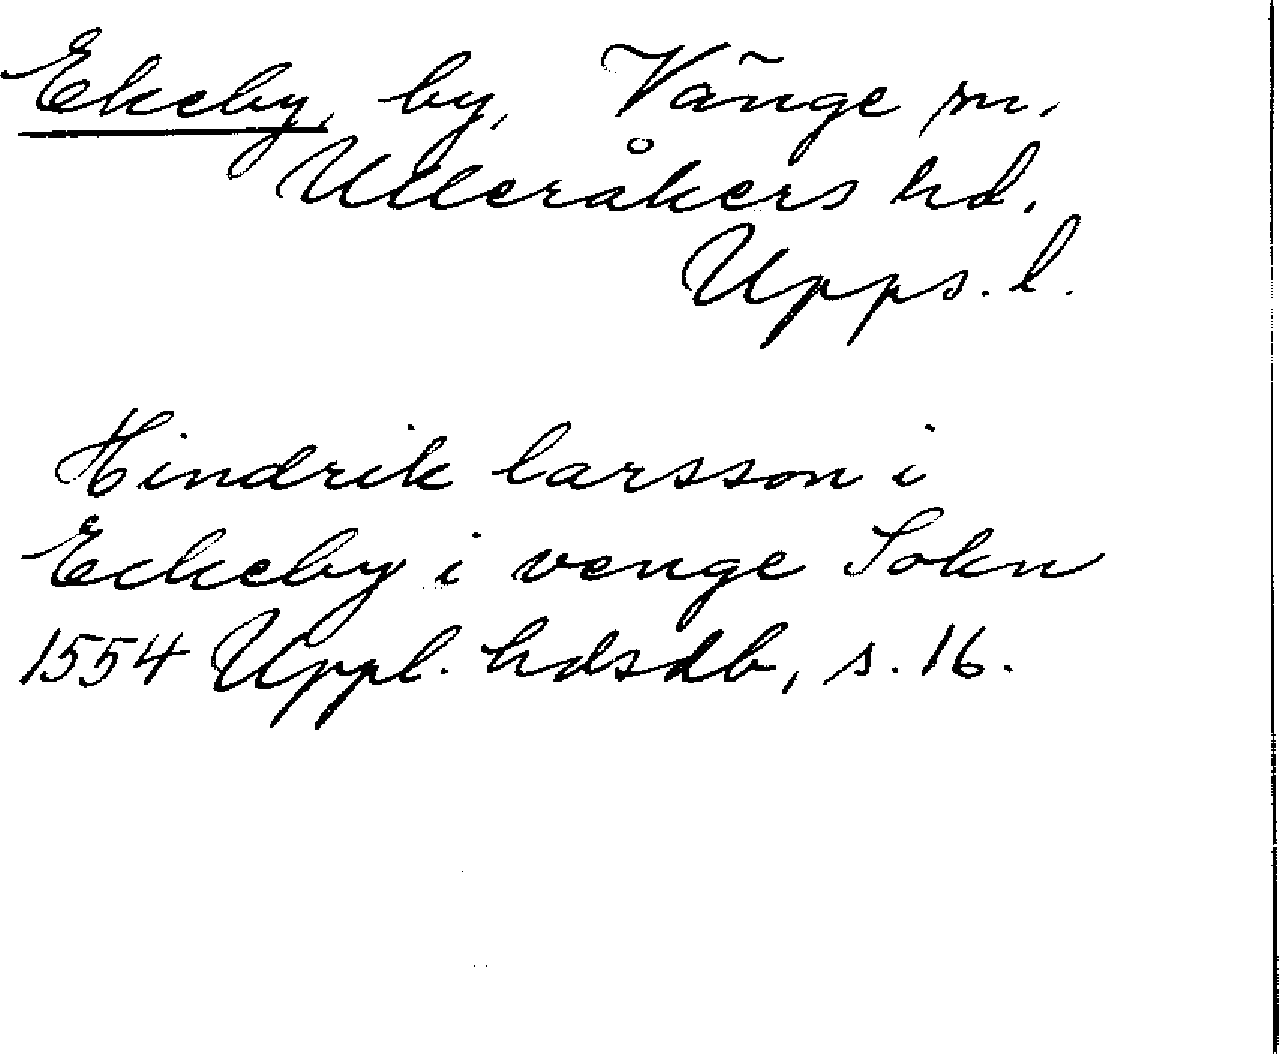 Ekeby, by, Vänge sn.
Ulleråkers hd.
Upps. l.
Hindrik larsson i
Eckeby i venge Sokn
1554 Uppl. hdsdb, s. 16.